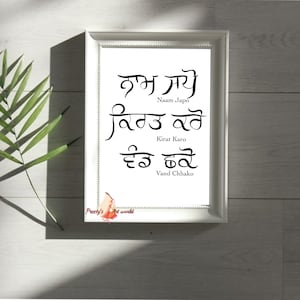 ਨਾਮ ਜਪੋ
Naam Japo
ਕਿਰਤ ਕਰੋ
Kirat Karo
ਵੰਡ ਛਕੋ
Vand Chhako
Preety's Art world